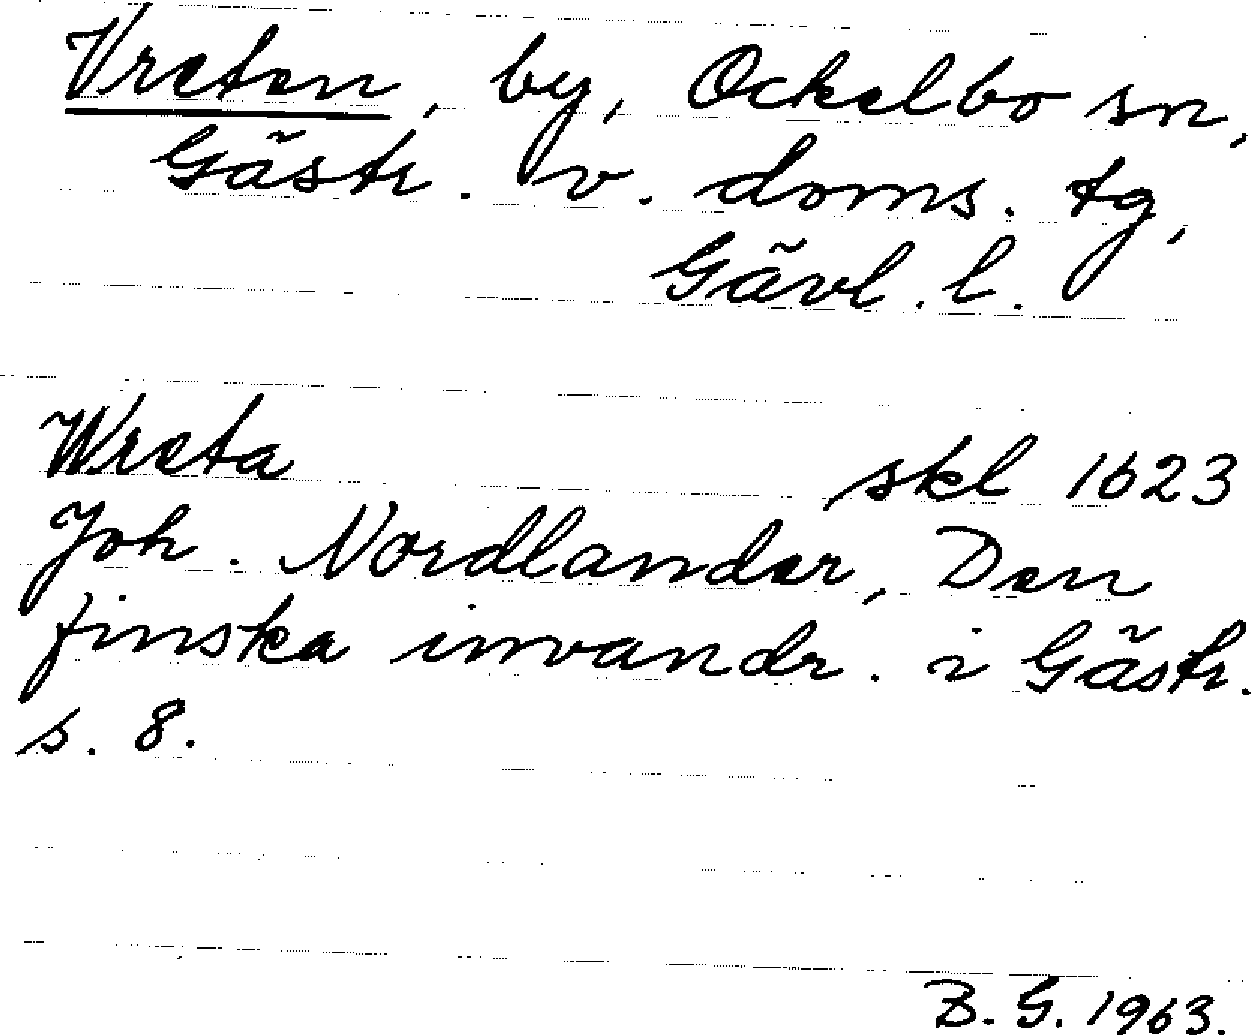 Vreten, by, Ockelbo sn,
Gästr. v. doms. tg,
Gävl. l.
Wreta skl 1623
Joh. Nordlander, Den
finska invandr. i Gästr.
s. 8.
B. G. 1963.